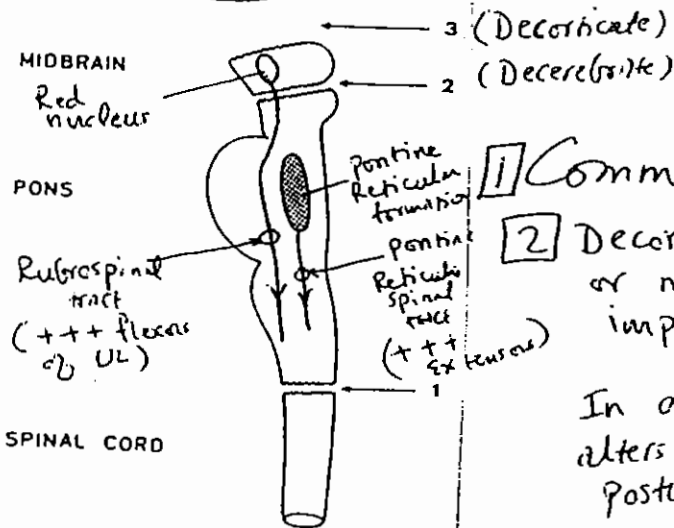 3 (Decorticate)
MIDBRAIN
2 (Decerebrate)
Red
nucleus
PONS
Pontine
Reticular
formation
1 Comm
2 Decor
or
imp
Rubrospinal
tract
(+++ flexors
of UL)
pontine
Reticulo
spinal
tract
(+++
extensors)
1
SPINAL CORD
In
alters
Post